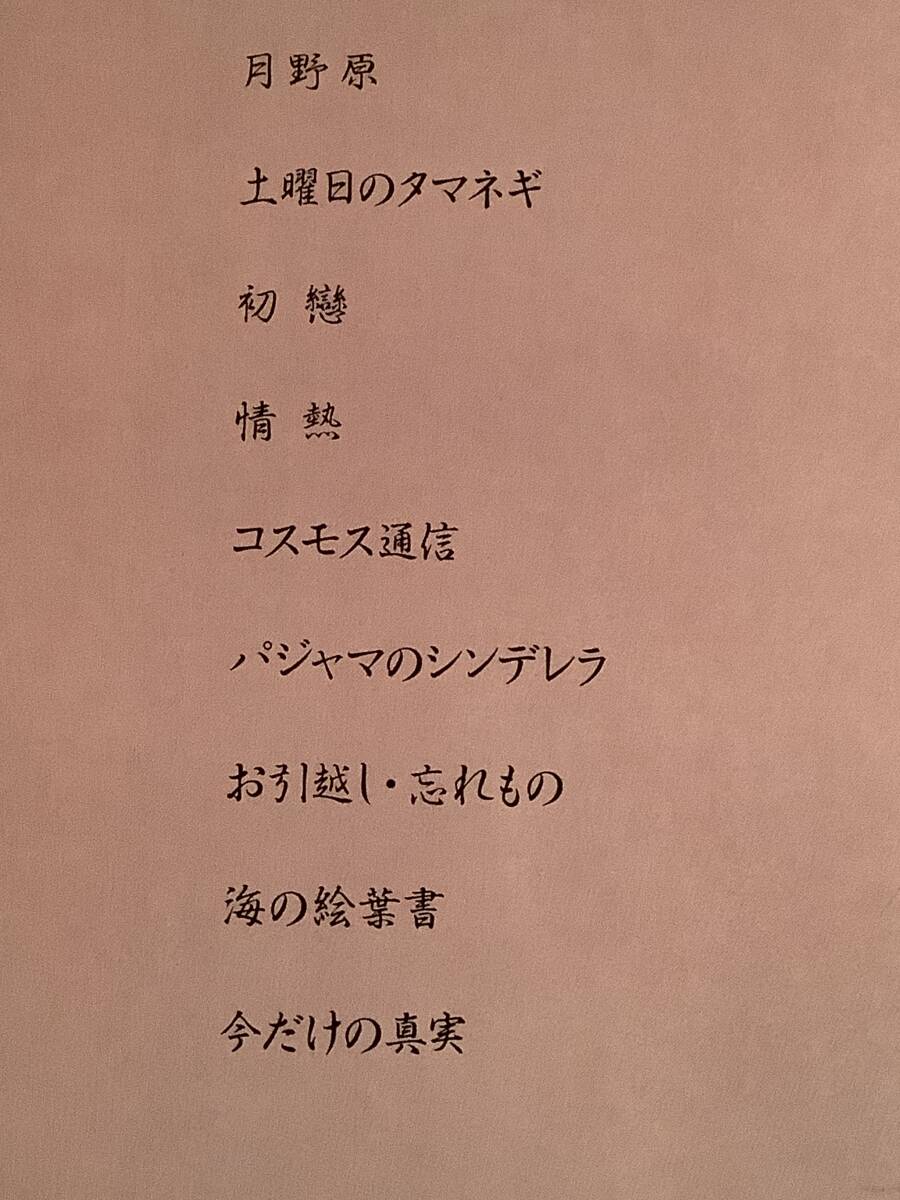 月野原
土曜日のタマネギ
初戀
情熱
コスモス通信
パジャマのシンデレラ
お引越し・忘れもの
海の絵葉書
今だけの真実